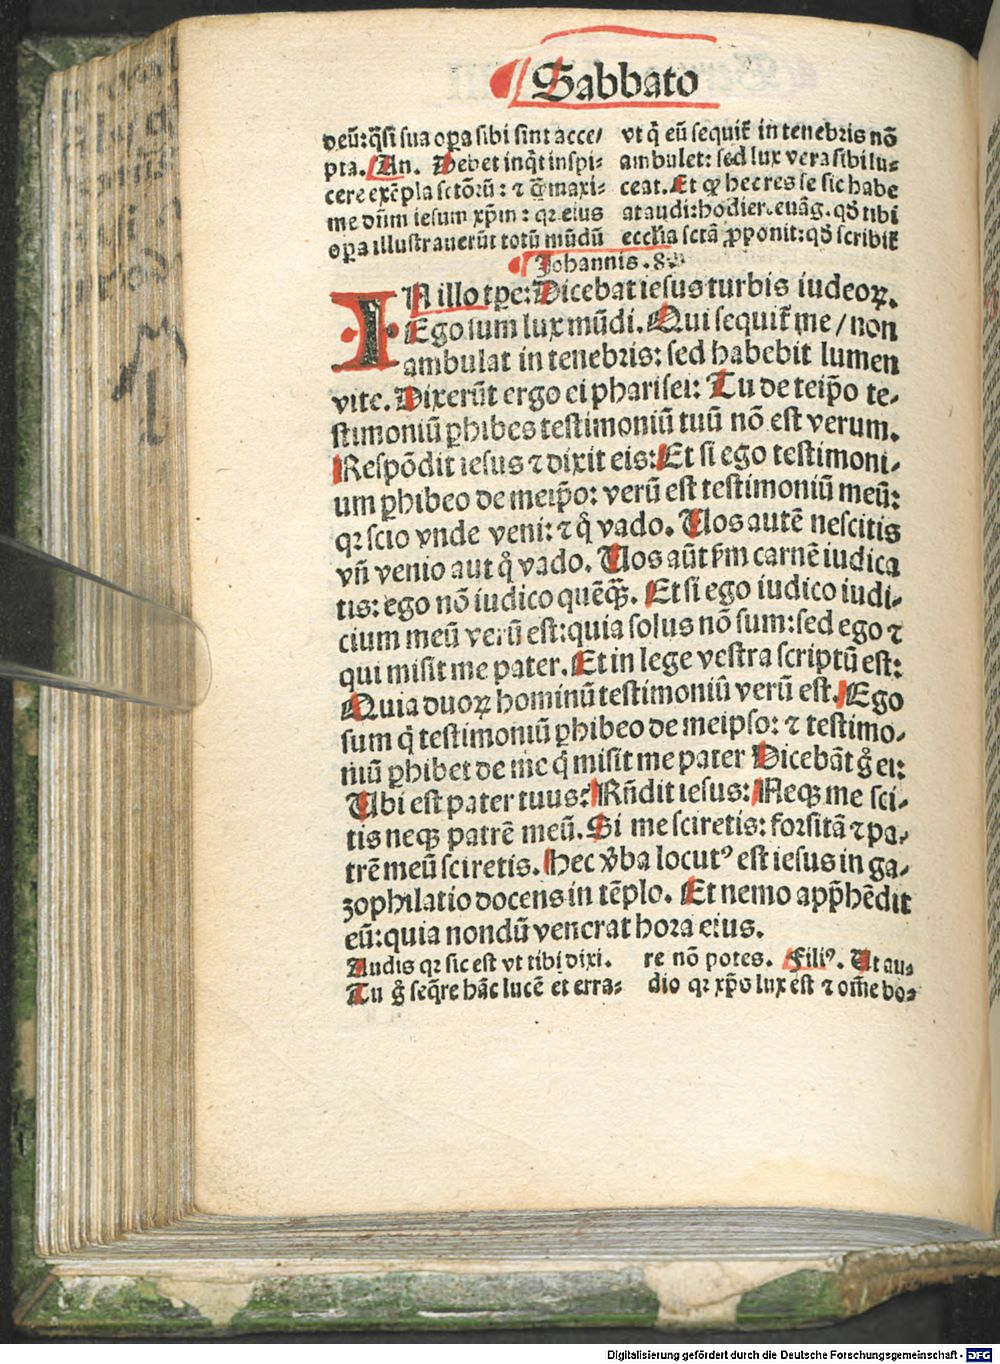 Sabbato
deū:q̄si sua oꝑa sibi sint acce/
pta. An. Debet inq̄t inspi-
cere exēpla sctōꝝū: ⁊ q̄ maxi-
me dn̄m iesum xp̄m: qꝛ eius
oꝑa illustrauerūt totū mūdū
vt q̇ eū sequit̄ in tenebris nō
ambulet: sed lux vera sibi lu-
ceat. Et ꝙ hec res se sic habe
at audi: hodier. euāg. qd̄ tibi
ecclīa sctā ꝓponit: qd̄ scribit̄
Johannis .8.
IN illo tꝑe: Dicebat iesus turbis iudeoꝝ.
Ego sum lux mūdi. Qui sequit̄ me / non
ambulat in tenebris: sed habebit lumen
vite. Dixerūt ergo ei pharisei: Tu de teip̄o te-
stimoniū ꝑhibes testimoniū tuū nō est verum.
Respōdit iesus ⁊ dixit eis: Et si ego testimoni-
um ꝑhibeo de meip̄o: verū est testimoniū meū:
qꝛ scio vnde veni: ⁊ q̊ vado. Uos autē nescitis
vn̄ venio aut q̊ vado. Uos aūt ẜm carnē iudica
tis: ego nō iudico quēqꝫ̄. Et si ego iudico iudi-
cium meū verū est: quia solus nō sum: sed ego ⁊
qui misit me pater. Et in lege vestra scriptū est:
Quia duoꝝ hominū testimoniū verū est. Ego
sum q̇ testimoniū ꝑhibeo de meipso: ⁊ testimo-
niū ꝑhibet de me q̇ misit me pater Dicebāt g̊ ei:
Ubi est pater tuus? Rn̄dit iesus: Neqꝫ me sci-
tis neqꝫ patrē meū. Si me sciretis: forsitā ⁊ pa-
trē meū sciretis. Hec v̄ba locutꝰ est iesus in ga-
zophilatio docens in tēplo. Et nemo app̄hēdit
eū: quia nondū venerat hora eius.
Audis qꝛ sic est vt tibi dixi.
Tu g̊ seq̄re hāc lucē et erra-
re nō potes. Filiꝰ. Ut au-
dio qꝛ xp̄s lux est ⁊ om̄e bo-
Digitalisierung gefördert durch die Deutsche Forschungsgemeinschaft - DFG